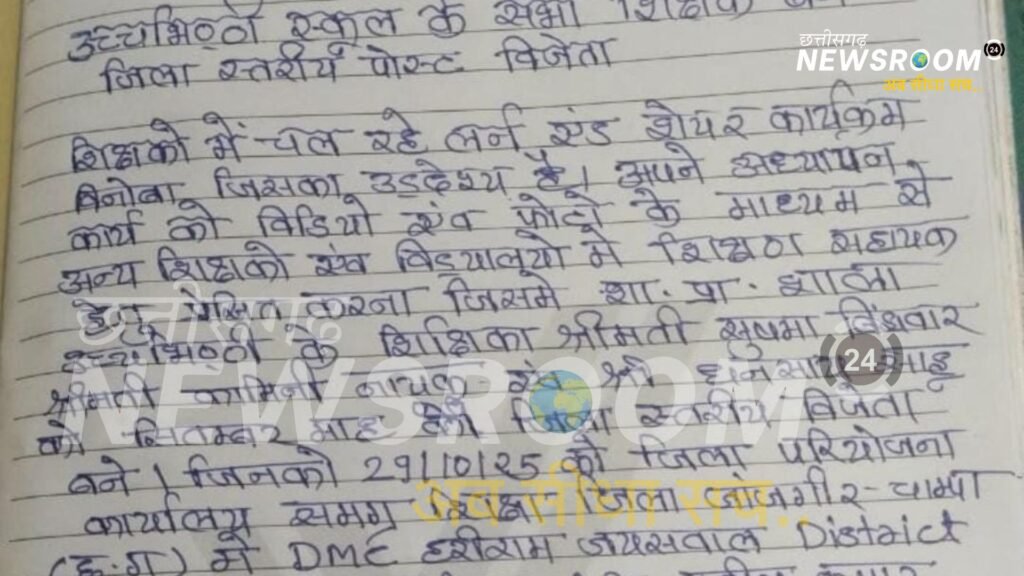 उच्चभिठ्ठी स्कूल के सभी शिक्षक बने
जिला स्तरीय पोस्ट विजेता
छत्तीसगढ़
NEWSROOM 24
अब सीधा सच..
शिक्षको में चल रहे लर्न एंड शेयर कार्यक्रम
विनोबा जिसका उद्देश्य है। अपने अध्यापन
कार्य को विडियो एंव फोटो के माध्यम से
अन्य शिक्षको एंव विद्यालयो मे शिक्षण सहायक
हेतू प्रेसित करना जिसमे शा. प्रा. शाला
उच्चभिठ्ठी के शिक्षिका श्रीमती सुषमा
श्रीमती कामिनी नायक एंव श्री साहू
को सितम्बर माह हेतू जिला स्तरीय विजेता
बने। जिनको 29/10/25 को जिला परियोजना
कार्यालय समग्र शिक्षा जिला जांजगीर-चाम्पा
(छ.ग) में DMC हरीराम जयसवाल District
छत्तीसगढ़
NEWSROOM 24
अब सीधा सच..